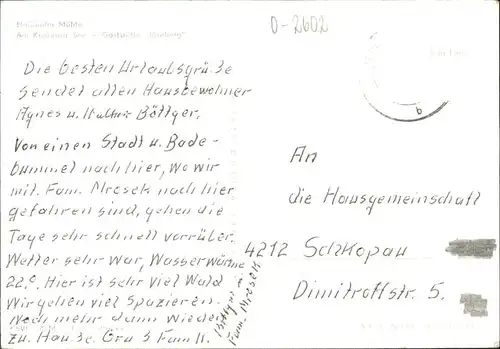 Holländer Mühle
Am
See - Gaststätte
O-2602
Die besten Urlaubsgrüße
sendet allen Hausbewohner
Agnes u. Böttger.
Von einen Stadt u. Bade-
bummel nach hier, wo wir
mit. Fam. Mrosek nach hier
gefahren sind, gehen die
Tage sehr schnell vorrüber.
Wetter sehr war, Wasserwärme
22,° Hier ist sehr viel Wald
Wir gehen viel Spazieren.
Noch mehr dann wieder
zu. Hauße. Gruß Famil.
Böttger u.
Fam. Mrosek
An
die Hausgemeinschaft
4212 Schkopau
Dimitroffstr. 5.